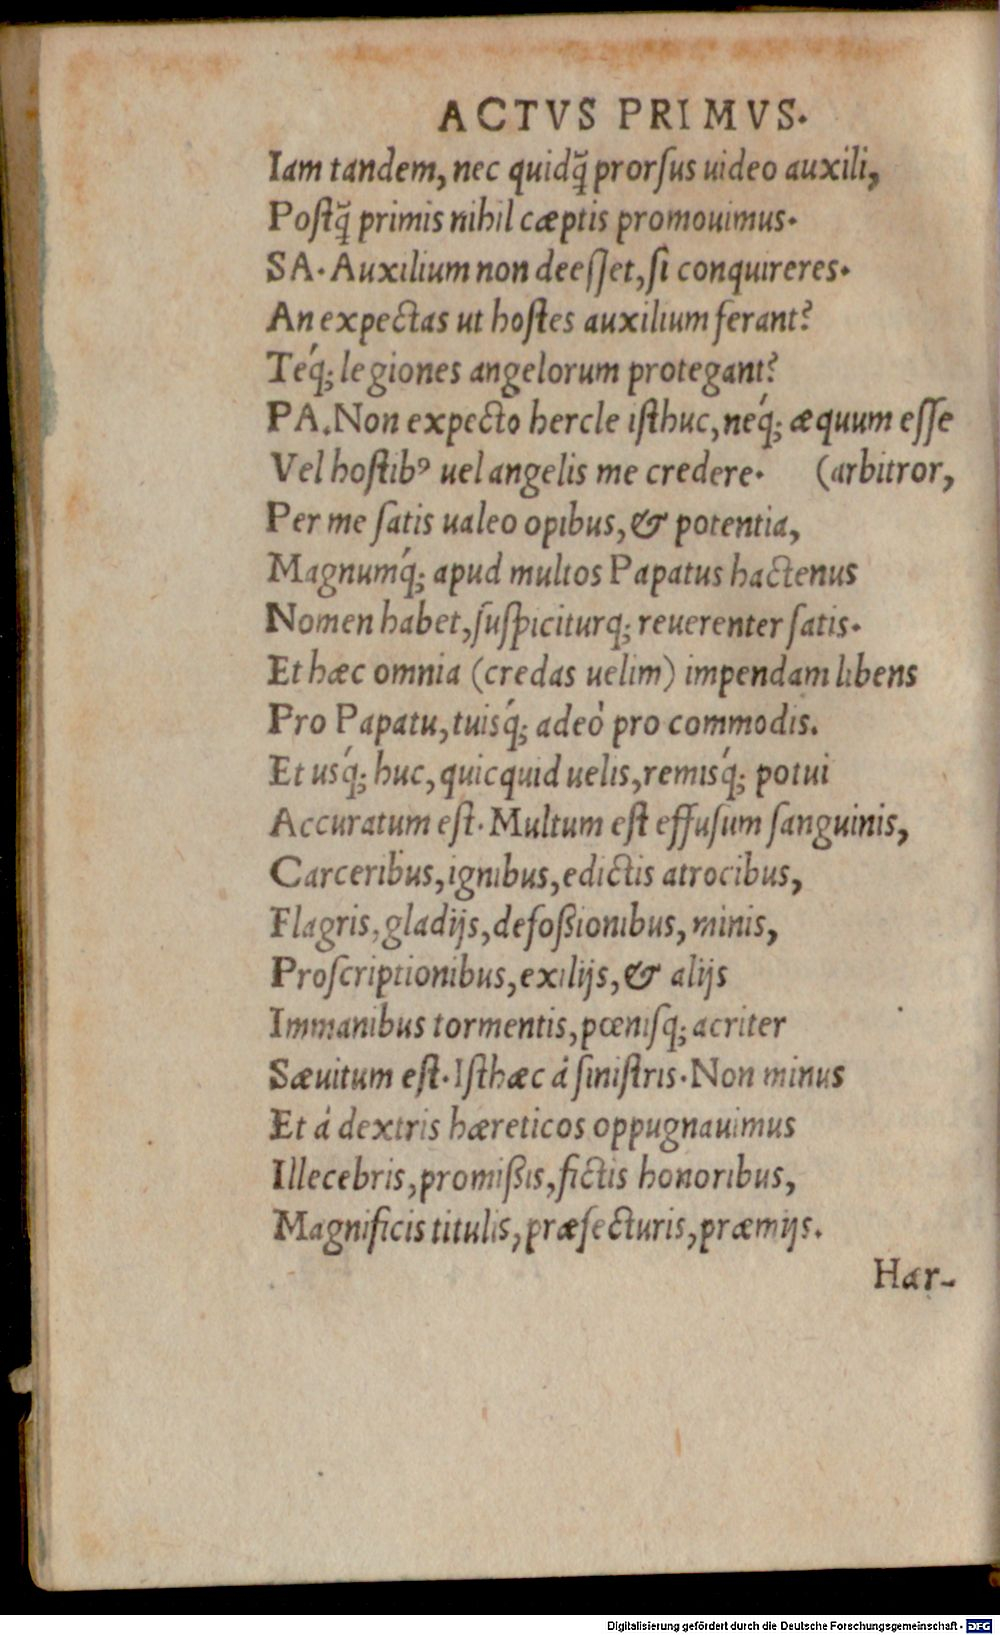 ACTVS PRIMVS.
Iam tandem, nec quidq̃ prorſus uideo auxili,
Poſtq̃ primis nihil cæptis promouimus.
SA. Auxilium non deeſſet, ſi conquireres.
An expectas ut hoſtes auxilium ferant?
Teq́; legiones angelorum protegant?
PA. Non expecto hercle iſthuc, neq́; æquum eſſe
Vel hoſtibꝰ uel angelis me credere. (arbitror,
Per me ſatis ualeo opibus, & potentia,
Magnumq́; apud multos Papatus hactenus
Nomen habet, ſuſpiciturq; reuerenter ſatis.
Et hæc omnia (credas uelim) impendam libens
Pro Papatu, tuisq́; adeò pro commodis.
Et usq́; huc, quicquid uelis, remisq́; potui
Accuratum eſt. Multum eſt effuſum ſanguinis,
Carceribus, ignibus, edictis atrocibus,
Flagris, gladijs, defoßionibus, minis,
Proſcriptionibus, exilijs, & alijs
Immanibus tormentis, pœniſq; acriter
Sæuitum eſt. Iſthæc á ſiniſtris. Non minus
Et á dextris hæreticos oppugnauimus
Illecebris, promißis, fictis honoribus,
Magnificis titulis, præfecturis, præmijs.
Hær-
Digitalisierung gefördert durch die Deutsche Forschungsgemeinschaft - DFG